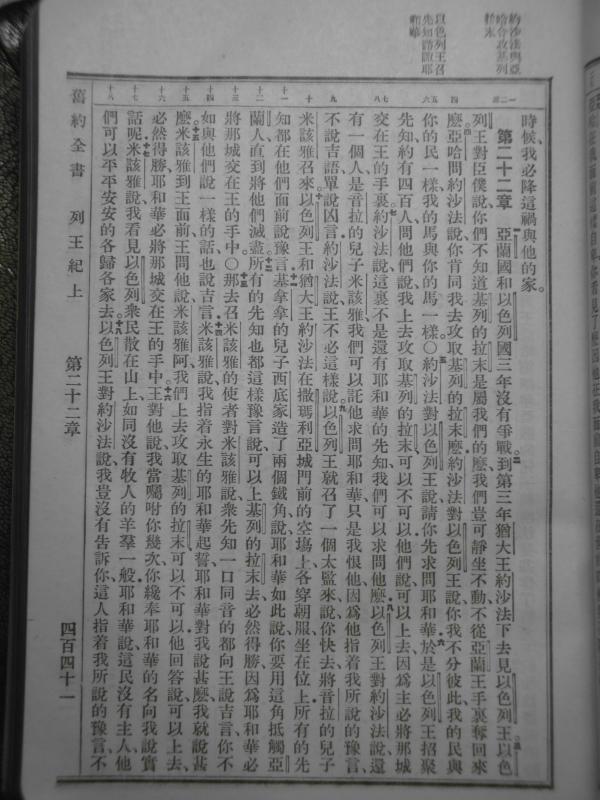 約沙法與亞
哈合攻基列
拉末
以色列王召
先知諮諏耶
和華
時候、我必降這禍與他的家。
第二十二章 亞蘭國和以色列國三年沒有爭戰、到第三年、猶大王約沙法下去見以色列王、以色
列王對臣僕說、你們不知道基列的拉末是屬我們的麼、我們豈可靜坐不動、不從亞蘭王手裏奪回來
麼、亞哈問約沙法說、你肯同我去攻取基列的拉末麼、約沙法對以色列王說、你我不分彼此、我的民與
你的民一樣、我的馬與你的馬一樣。〇約沙法對以色列王說、請你先求問耶和華、於是以色列王招聚
先知、約有四百人、問他們說、我上去攻取基列的拉末、可以不可以、他們說、可以上去、因爲主必將那城
交在王的手裏、約沙法說、這裏不是還有耶和華的先知、我們可以求問他麼、以色列王對約沙法說、還
有一個人、是音拉的兒子米該雅、我們可以託他求問耶和華、只是我恨他、因爲他指着我所說的豫言、
不說吉語、單說凶言、約沙法說、王不必這樣說、以色列王就召了一個太監來、說、你快去將音拉的兒子
米該雅召來、以色列王和猶大王約沙法、在撒瑪利亞城門前的空場上、各穿朝服、坐在位上、所有的先
知都在他們面前說豫言、基拿拿的兒子西底家、造了兩個鐵角、說、耶和華如此說、你要用這角抵觸亞
蘭人、直到將他們滅盡、所有的先知也都這樣豫言說、可以上基列的拉末去、必然得勝、因爲耶和華必
將那城交在王的手中。〇那去召米該雅的使者、對米該雅說、衆先知一口同音的都向王說吉言、你不
如與他們說一樣的話、也說吉言、米該雅說、我指着永生的耶和華起誓、耶和華對我說甚麼、我就說甚
麼、米該雅到王面前、王問他說、米該雅阿、我們上去攻取基列的拉末、可以不可以、他回答說、可以上去、
必然得勝、耶和華必將那城交在王的手中、王對他說、我當囑咐你幾次、你纔奉耶和華的名向我說實
話呢、米該雅說、我看見以色列衆民散在山上、如同沒有牧人的羊羣一般、耶和華說、這民沒有主人、他
們可以平平安安的各歸各家去、以色列王對約沙法說、我豈沒有告訴你、這人指着我所說的豫言、不
舊約全書 列王紀上 第二十二章 四百四十一